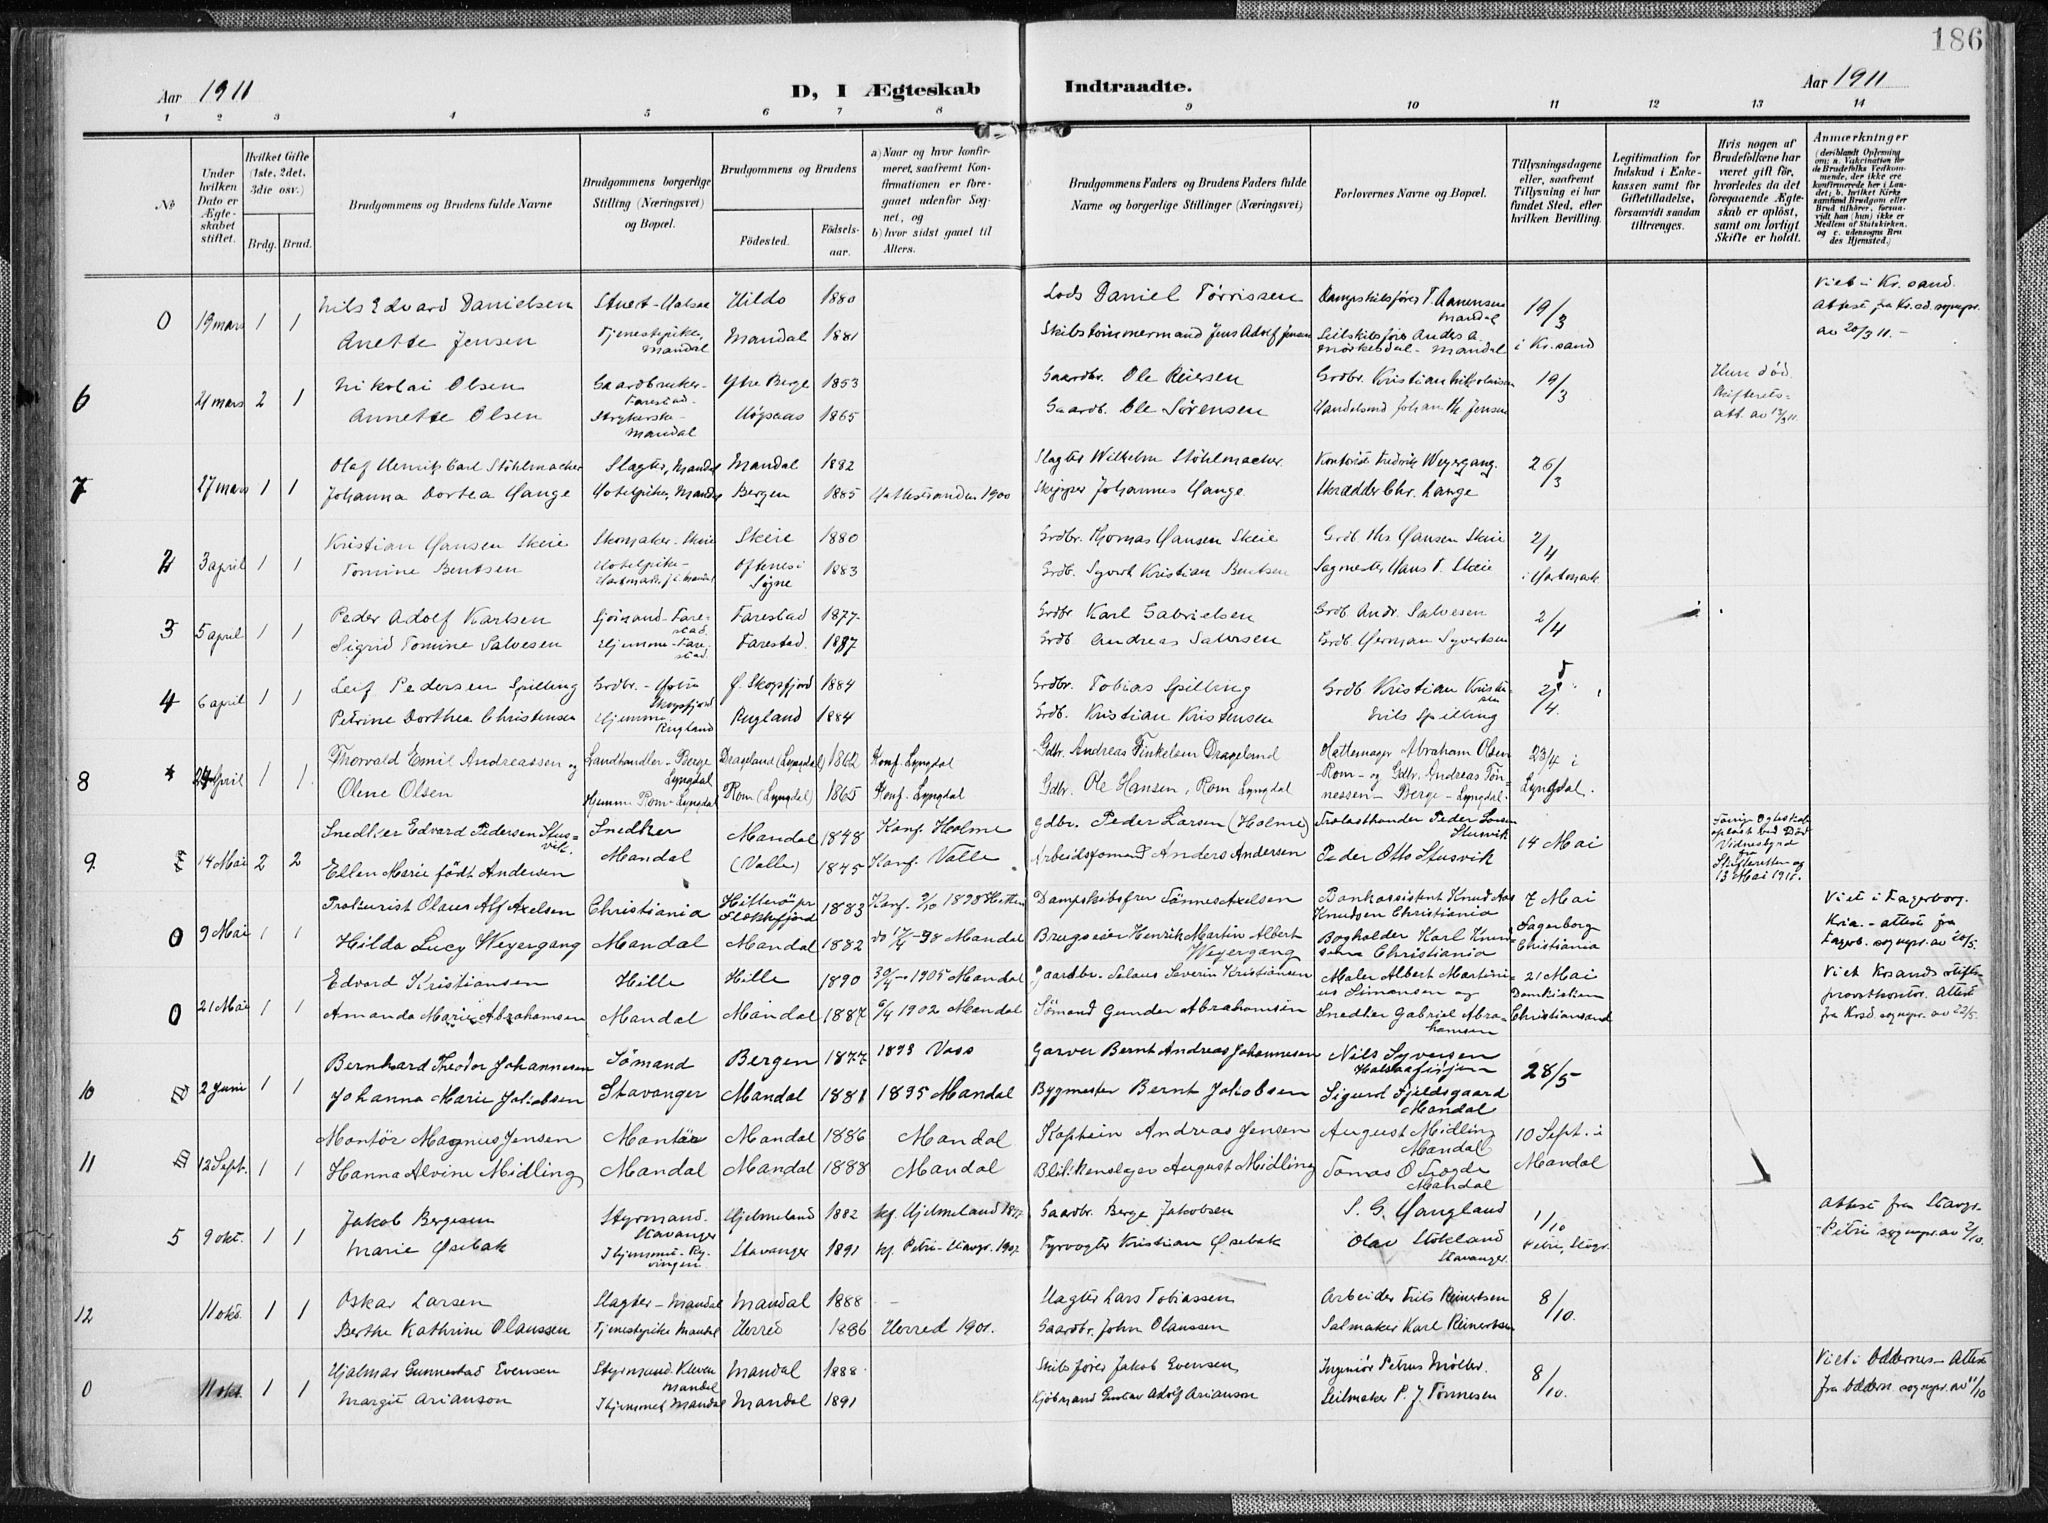 186
Aar 1911
D, I Ægteskab Indtraadte.
Aar 1911
1 2 3 4 5 6 7 8 9 10 11 12 13 14
No
Under hvilken Dato er Ægteskabet stiftet.
Hvilket Gifte (1ste, 2det, 3die osv.)
Brdg. Brud.
Brudgommens og Brudens fulde Navne
Brudgommens borgerlige Stilling (Næringsvei) og Bopæl.
Brudgommens og Brudens
Fødested. Fødselsaar.
a) Naar og hvor konfirmeret, saafremt Konfirmationen er foregaaet udenfor Sognet, og
b) hvor sidst gaaet til Alters.
Brudgommens Faders og Brudens Faders fulde Navne og borgerlige Stillinger (Næringsvei)
Forlovernes Navne og Bopæl.
Tillysningsdagene eller, saafremt Tillysning ei har fundet Sted, efter hvilken Bevilling.
Legitimation for Indskud i Enkekassen samt for Giftetilladelse, forsaavidt saadan tiltrænges.
Hvis nogen af Brudefolkene har været gift før, hvorledes da det foregaaende Ægteskab er opløst, samt om lovligt Skifte er holdt.
Anmærkninger
0 19 mars 1 1 Nils Edvard Danielsen Hilde 1880 Lods Daniel Tørrissen 19/3 Viet i Kr.sand.
Anette Jensen Tjenestepike, Mandal Mandal 1881 Skibstømmermand Jens Adolf Jensen Mandal i Kr.sand av 20/3 11.-
6 21 mars 2 1 Nikolai Olsen Gaardbruker- Farestad Ytre Berge 1853 Gaardbr. Ole Reiersen 19/3 Hun død.
Annette Olsen Mandal Høgsaas 1865 Gaardb. Ole Sørensen
7 27 mars 1 1 Olaf Henrik Carl Stöhlmacher Slagter, Mandal Mandal 1882 Slagter Wilhelm Stöhlmacher. Kontorist Fredrik Weyergang. 26/3
Johanna Dortea Hange Hotelpike, Mandal Bergen 1885 Skipper Johannes Hange Skrædder Chr. Lange
2 3 april 1 1 Kristian Hansen Skeie Skomaker - Skeie Skeie 1880 Grdbr. Thomas Hansen Skeie Grdb. Ths Hansen Skeie 2/4
Tomine Bentsen Hotelpike- Oftenes i Søgne 1883 Grdb. Syvert Kristian Bentsen Sagmester Hans T. Skeie i Hartmark
3 5 april 1 1 Peder Adolf Karlsen Farestad Farestad 1877 Grdbr Karl Gabrielsen Grdb. Andr. Salvesen 2/4
Sigrid Tomine Salvesen Hjemme - Farestad. Farestad. 1887 Grdb. Andreas Salvesen Grdb. Herman Syvertsen
4 6 april 1 1 Leif Pedersen Spilling Grdbr. - Holm Skogsfjord Ø. Skogsfjord 1884 Grdbr. Tobias Spilling Grdb Kristian Kristensen 2/4
Petrine Dorthea Christensen Hjemme. Rugland Rugland 1884 Grdb. Kristian Kristensen Erik Spilling
8 april 1 1 Thorvald Emil Andreassen og Landhandler - Berge Lyngdal Drageland (Lyngdal) 1862 Konf. Lyngdal Gdbr. Andreas Finkelsen Drageland Hattemager Abraham Olsen 23/4 i
Olene Olsen Hjemme Rom - Lyngdal Rom (Lyngdal) 1865 Konf. Lyngdal Gdbr. Ole Hansen, Rom Lyngdal Rom - og Gdbr. Andreas Tönnessen - Berge - Lyngdal. Lyngdal.
9 14 Mai 2 2 Snedker Edvard Pedersen Stusvik. Snedker Mandal 1848 Konf. Holme Gdbr. Peder Larsen (Holme) Peder Larsen Stusvik 14 Mai
Ellen Marie født Andersen Mandal (Valle) 1845 Konf. Valle Arbeidsformand Anders Andersen Peder Otto Stusvik 13 Mai 1911.
0 9 Mai 1 1 Prokurist Olaus Alf Axelsen Christiania Hitterö pr Flekkefjord 1883 Dampskibsfører Tönnes Axelsen Bankassistent Knud Aas Knudsen Christiania 7 Mai Viet i Fagerborg.
Hilda Lucy Weyergang Mandal Mandal 1882 Mandal Brugseier Henrik Martin Albert Weyergang Bogholder Karl Knudsen Christiania Fagerborg Christiania
0 21 Mai 1 1 Edvard Kristiansen Hille Hille 1890 30/4 1905 Mandal Gaardbr. Salaus Severin Kristiansen Maler Albert Martinius Simonsen og 21 Mai
Amanda Marie Abrahamsen Mandal Mandal 1887 6/4 1902 Mandal Sömand Gunder Abrahamsen Snedker Gabriel Abrahamsen Domkirken Christiansand
10 2 Juni 1 1 Bernhard Theodor Johannesen Sömand Bergen 1877 1893 Voss Garver Bernt Andreas Johannesen Nils Syversen 28/5
Johanna Marie Jakobsen Stavanger Mandal 1881 1895 Mandal Bygmester Bernt Jakobsen Sigurd Fjeldsgaard Mandal
11 12 Sept. 1 1 Montör Magnus Jensen Montör Mandal 1886 Mandal Kaptein Andreas Jensen August Midling Mandal 10 Sept. i
Hanna Alvine Midling Mandal Mandal 1888 Mandal Blikkenslager August Midling Tomas O Trogde Mandal Mandal
5 9 okt. 1 1 Jakob Bergesen Styrmand. Stavanger Hjelmeland 1882 Gaardbr. Berge Jakobsen S. G. Hangland 1/10 Attest fra Stavgr.
Marie Øsebak Stavanger 1891 kf Petri - Stavgr. 1907. Fyrvogter Kristian Øsebak Olav Stokland Stavanger. Petri, Stvgr. -Petri sognepr. av 2/10
12 11 okt. 1 1 Oskar Larsen Slagter - Mandal Mandal 1888 - Slagter Lars Tobiassen Arbeider Frits Reinertsen 8/10.
Berthe Kathrine Olaussen Tjenestepike Mandal Herred 1886 Herred 1901. Gaardbr. John Olaussen Salmaker Karl Reinertsen
0 11 okt. 1 1 Hjalmar Gunnestad Evensen Styrmand Kleven Mandal Mandal 1888 Skibsfører Jakob Evensen Ingeniør Petrus Møller. 8/10. Viet i Oddernes - Attest
Margit Arianson I hjemmet Mandal Mandal 1891 Kjøbmand Gustav Adolf Arianson Seilmaker P. J. Tønnesen fra Oddern. sognepr. av 11/10